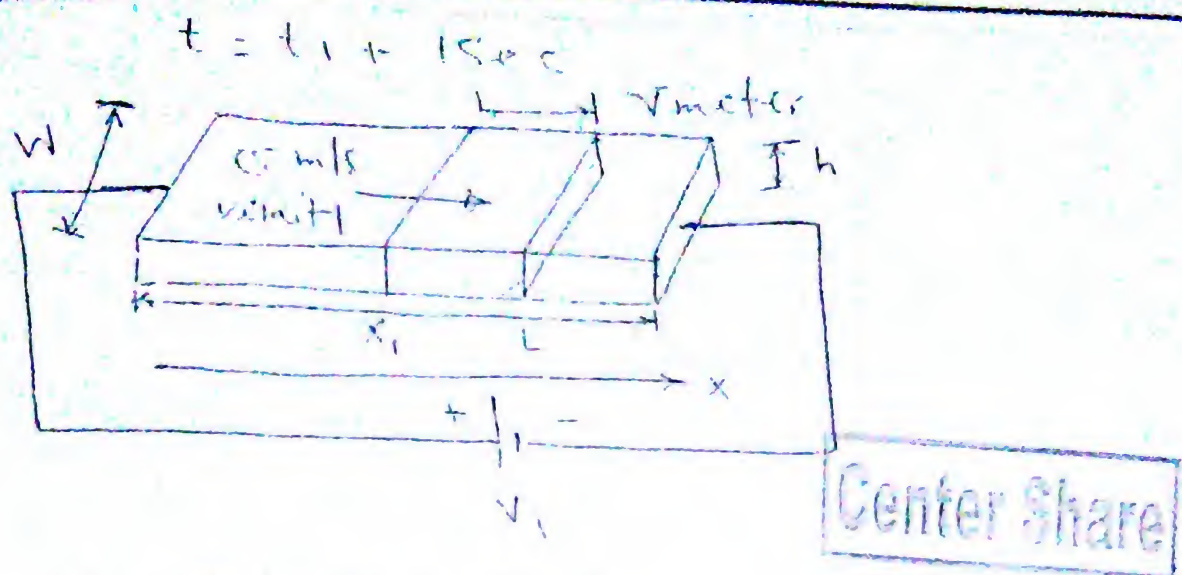 t = t1 + 1Sec
V meter
W
m/s
h
x1
L
x
+ -
V1
Center Share